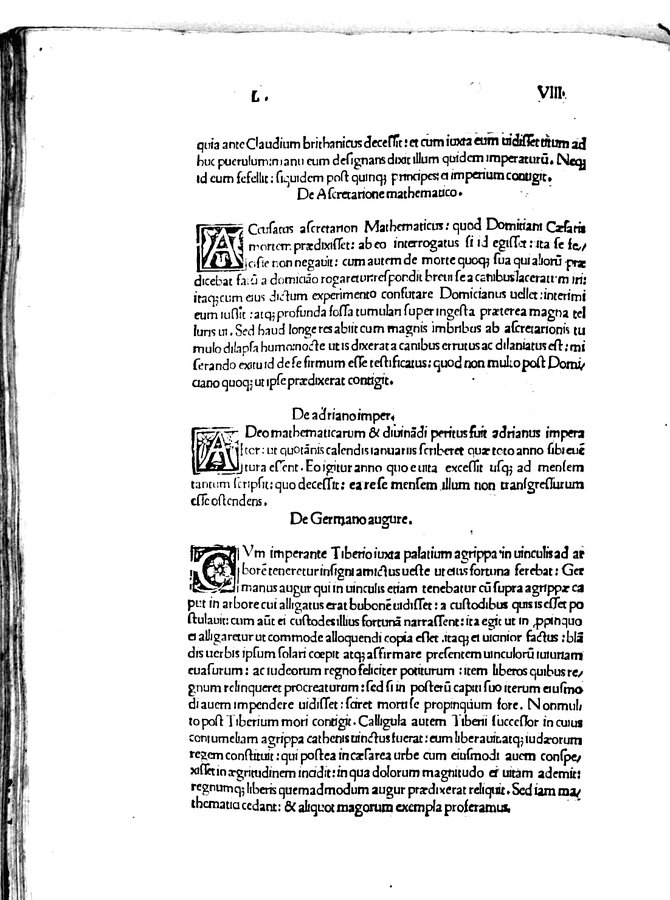 L.
VIII.
quia ante Claudium brithanicus decessit: et cum iuxta eum uidisset titum ad
huc puerulum: manu eum designans dixit illum quidem imperaturū. Neq;
id eum fefellit: siquidem post quinq; principes: ei imperium contigit.
De Ascretarione mathematico.
ACcusatus ascretarion Mathematicus: quod Domitiani Cæsaris
mortem prædixisset: ab eo interrogatus si id egisset: ita se fe/
cisse non negauit: cum autem de morte quoq; sua qui aliorū præ
dicebat fatū a domiciāo rogaretur: respondit breui se a canibus laceratum iri:
itaq; cum eius dictum experimento confutare Domicianus uellet: interimi
eum iussit: atq; profunda fossa tumulari super ingesta præterea magna tel
luris ui. Sed haud longe res abiit cum magnis imbribus ab ascretarionis tu
mulo dilapsa humo nocte ut is dixerat a canibus erutus ac dilaniatus est: mi
serando exitu id de se firmum esse testificatus: quod non multo post Domi/
ciano quoq; ut ipse prædixerat contigit.
De adriano imper.
ADeo mathematicarum & diuināđi peritus fuit adrianus impera
tor: ut quotānis calendis ianuariis scriberet quæ toto anno sibi euē
tura essent. Eo igitur anno quo e uita excessit usq; ad mensem
tantum scripsit: quo decessit: ea re se mensem illum non transgressurum
esse ostendens.
De Germano augure.
CVm imperante Tiberio iuxta palatium agrippa in uinculis ad ar
borē teneretur insigni amictus ueste ut eius fortuna ferebat: Ger
manus augur qui in uinculis etiam tenebatur cū supra agrippæ ca
put in arbore cui alligatus erat bubonē uidisset: a custodibus quis is esset po
stulauit: cum aūt ei custodes illius fortunā narrassent: ita egit ut in ppinquo
ei alligaretur ut commode alloquendi copia esset. itaq; ei uicinior factus: blā
dis uerbis ipsum solari coepit atq; affirmare presentem uinculorū iniuriam
euasurum: ac iudeorum regno feliciter potiturum: item liberos quibus re/
gnum relinqueret procreaturum: sed si in posterū capiti suo iterum eiusmo
di auem impendere uidisset: sciret morti se propinquum fore. Non mul
to post Tiberium mori contigit. Calligula autem Tiberii successor in cuius
contumeliam agrippa cathenis uinctus fuerat: eum liberauit. atq; iudæorum
regem constituit: qui postea in cæsarea urbe cum eiusmodi auem conspe/
xisset in ægritudinem incidit: in qua dolorum magnitudo ei uitam ademit:
regnumq; liberis quemadmodum augur prædixerat reliquit. Sed iam ma/
thematici cedant: & aliquot magorum exempla proferamus.